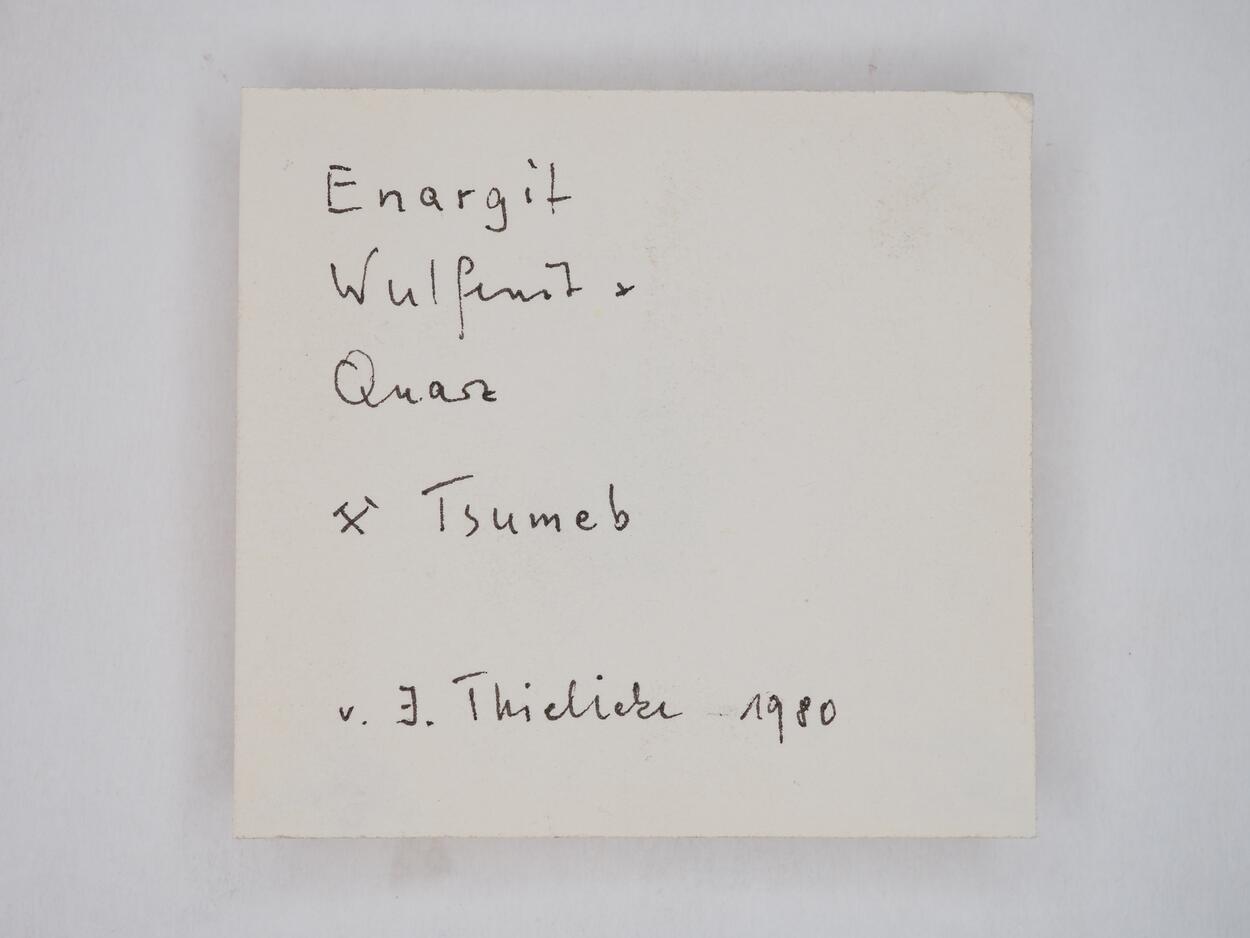 Enargit
Wulfenit x
Quarz
⚒ Tsumeb
v. J. Thielicke 1980